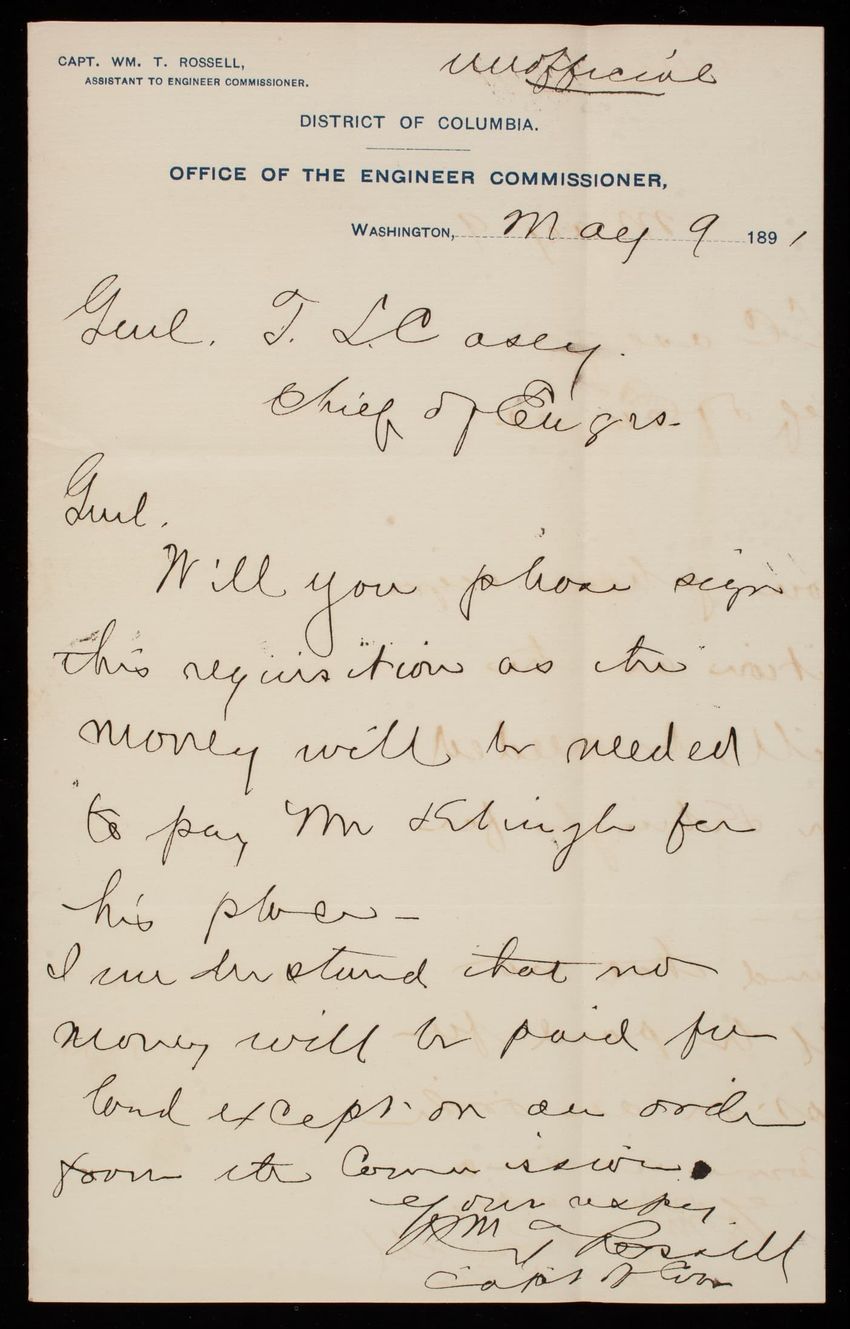 CAPT. WM. T. ROSSELL,
ASSISTANT TO ENGINEER COMMISSIONER.
unofficial
DISTRICT OF COLUMBIA.
OFFICE OF THE ENGINEER COMMISSIONER,
WASHINGTON, May 9 1891
Genl. T. L. Casey.
Chief of Engrs-
Genl.
Will you please sign
this requisition as the
money will be needed
to pay Mr Klingle for
his place -
I understand that no
money will be paid for
land except on an order
from the Commission.
Your respy
Wm T Rossell
Capt of Eng